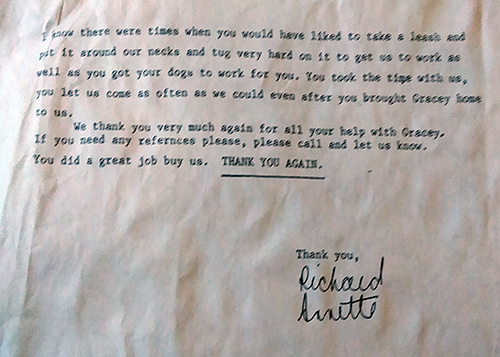 I know there were times when you would have liked to take a leash and
put it around our necks and tug very hard on it to get us to work as
well as you got your dogs to work for you. You took the time with us,
you let us come as often as we could even after you brought Gracey home
to us.
We thank you very much again for all your help with Gracey.
If you need any refernces please, please call and let us know.
You did a great job buy us. THANK YOU AGAIN.
Thank you,
Richard
Annette